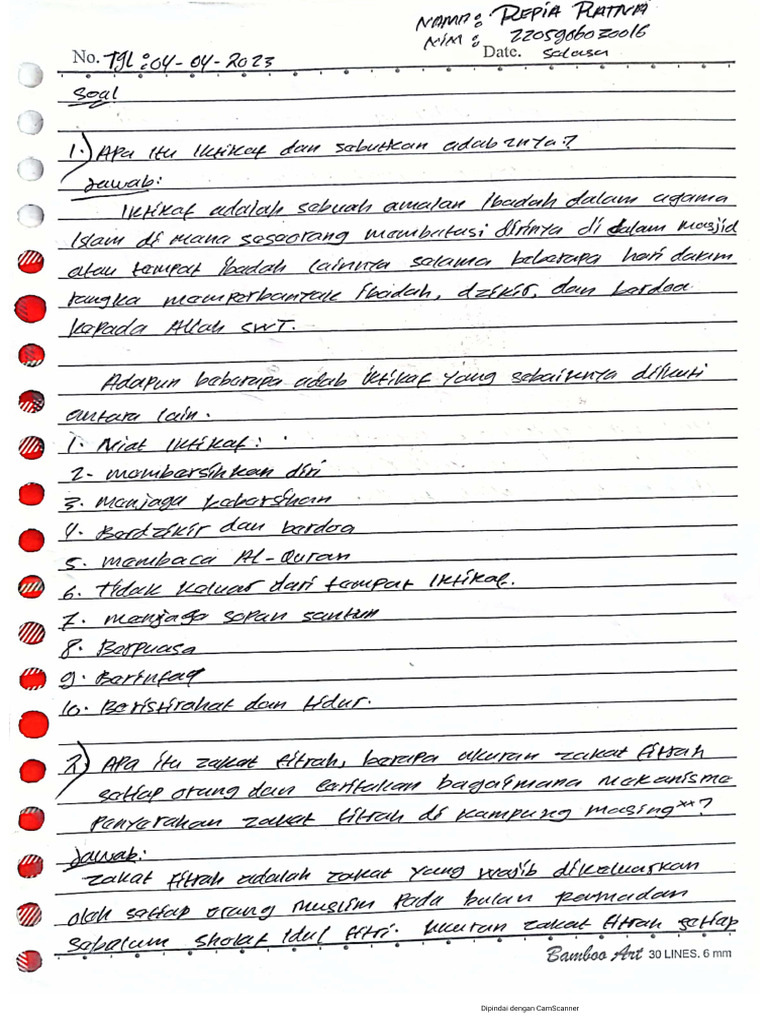 NAMA: REPIA RATNA
NIM: 2205906030016
No. TGL: 04-04-2023 Date. selasa
Soal
1.) Apa itu Iktikaf dan sebutkan adab2nya?
Jawab:
Iktikaf adalah sebuah amalan Ibadah dalam agama
Islam di mana seseorang membatasi dirinya di dalam masjid
atau tempat ibadah lainnya selama beberapa hari dalam
rangka memperbanyak ibadah, dzikir, dan berdoa
kepada Allah SWT.
Adapun beberapa adab iktikaf yang sebaiknya diikuti
antara lain.
1. Niat Iktikaf:
2. membersihkan diri
3. menjaga kebersihan
4. Berdzikir dan berdoa
5. membaca Al-Quran
6. Tidak keluar dari tempat Iktikaf.
7. menjaga sopan santun
8. Berpuasa
9. Berinfaq
10. Beristirahat dan tidur.
2) Apa itu zakat fitrah, berapa ukuran zakat fitrah
setiap orang dan ceritakan bagaimana mekanisme
Penyerahan zakat fitrah di kampung masing"?
Jawab:
zakat fitrah adalah zakat yang wajib dikeluarkan
oleh setiap orang muslim pada bulan ramadan
sebelum sholat Idul fitri. ukuran zakat fitrah setiap
Bamboo Art 30 LINES. 6 mm
Dipindai dengan CamScanner